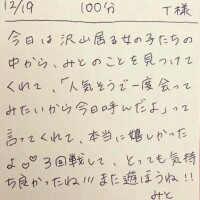 12/19 100分 T様
今日は沢山居る女の子たちの
中から、みとのことを見つけて
くれて、「人気そうで一度会って
みたいから今日呼んだよ」って
言ってくれて、本当に嬉しかった
よ♡♡ 3回戦して、とっても気持
ち良かったね!!! また遊ぼうね!!
みと